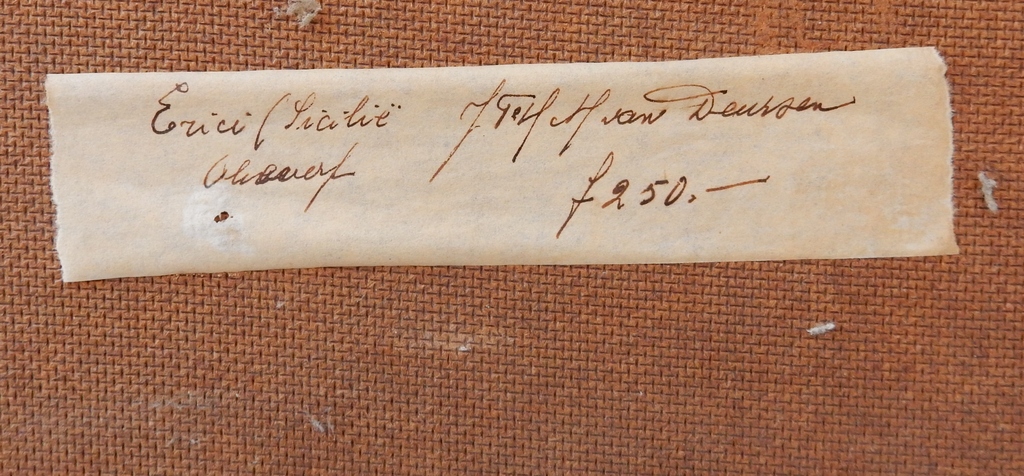 Erici (Sicilië J Th M van Deursen
Olieverf
f 250.—